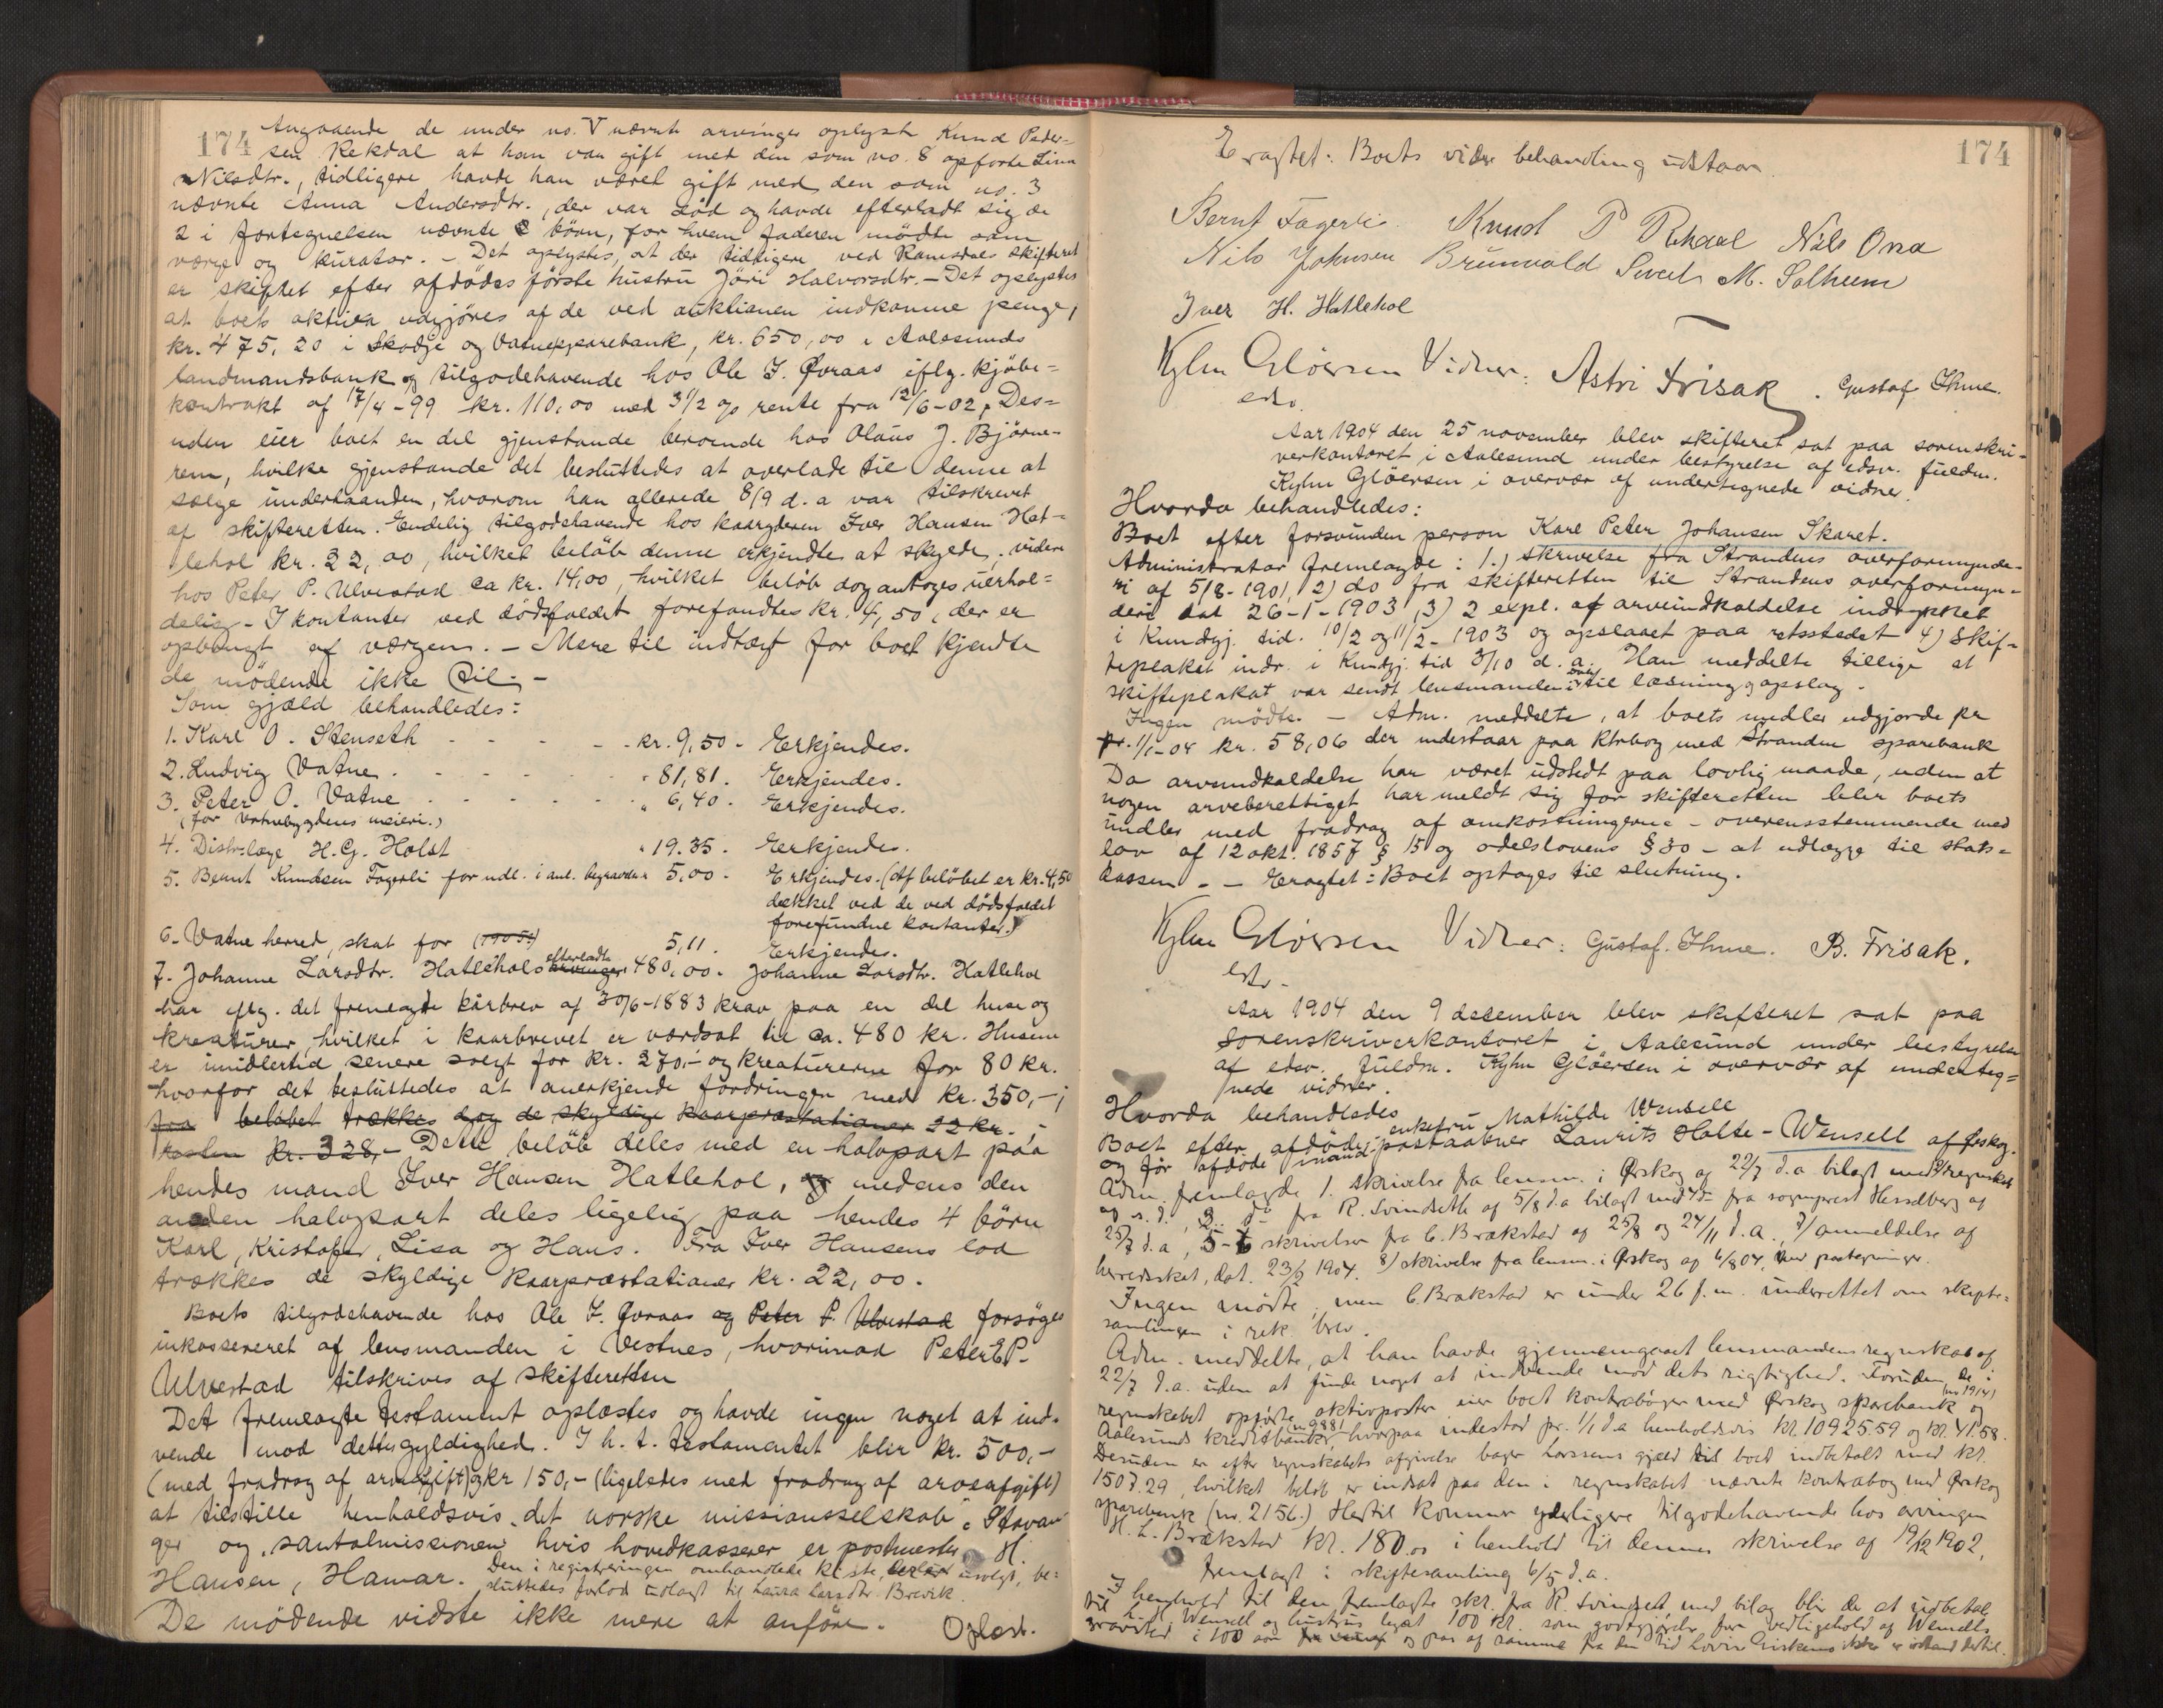 174
Angaaende de under no. V nævnte arvinger oplyste Knud Peder-
sen Rekdal at han var gift med den som no. 8 opførte Lina
Nilsdtr., tidligere havde han været gift med den som no. 3
nævnte Anna Andersdtr., der var död og havde efterladt sig de
2 i fortegnelsen nævnte börn, for hvem faderen mödte som
værge og kurator. - Det oplystes, at der tidligere ved Ramsdals skifteret
er skiftet efter afdödes förste hustru Jöri Halvorsdtr. - Det oplystes
at boets aktiva udgjöres af de ved auktionen indkomne penge,
kr. 475,20 i Skodje og Vatne sparebank, kr. 650,00 i Aalesunds
landmandsbank og tilgodehavende hos Ole J. Øvraas iflg. kjöbe-
kontrakt af 17/4-99 kr. 110,00 med 3 1/2 % rente fra 12/6-02. Des-
uden eier boet en del gjenstande beroende hos Olaus J. Björne-
rem, hvilke gjenstande det besluttedes at overlade til denne at
sælge underhaanden, hvorom han allerede 8/9 d. a var tilskrevet
af skifteretten. Endelig tilgodehavende hos kaaryderen Iver Hansen Hat-
lehol kr. 22,00, hvilket belöb denne erkjendte at skylde, videre
hos Peter P. Ulvestad ca kr. 14,00, hvilket belöb dog antoges uerhol-
delig. - I kontanter ved dödsfaldet forefandtes kr. 4,50, der er
opbrugt af værgen. - Mere til indtægt for boet kjendte
de mödende ikke til. -
Som gjæld behandledes:
1. Karl O. Stenseth - - - - - kr. 9,50 - Erkjendes.
2. Ludvig Vatne - - - - - - " 81,81. Erkjendes.
3. Peter O. Vatne - - - - - " 6,40. Erkjendes.
(for Vatnebygdens meieri.)
4. Distr.læge H. G. Holst " 19.35. Erkjendes.
5. Bernt Knudsen Fagerli for udl. i anl. begravelsen 5,00 - Erkjendes. (Af belöbet er kr. 4,50
dækket ved de ved dödsfaldet
forefundne kontanter.)
6. Vatne herred, skat for (1905?) 5,11. Erkjendes.
7. Johanne Larsdtr. Hatlehols efterladte arvinger 480,00. Johanne Larsdtr. Hatlehol
har iflg. det fremlagte kårbrev af 30/6-1883 krav paa en del huse og
kreaturer, hvilket i kaarbrevet er værdsat til ca. 480 kr. Husene
er imidlertid senere solgt for kr. 270,- og kreaturerne for 80 kr.
hvorfor det besluttedes at anerkjende fordringen med kr. 350,-;
fra belöbet trækkes dog de skyldige kaarpræstationer 22 kr. -
resten kr. 328,- Dette belöb deles med en halvpart paa
hendes mand Iver Hansen Hatlehol, og medens den
anden halvpart deles ligelig paa hendes 4 börn
Karl, Kristofer, Lisa og Hans. Fra Iver Hansens lod
trækkes de skyldige kaarpræstationer kr. 22,00.
Boets tilgodehavende hos Ole J. Øvraas og Peter P. Ulvestad forsöges
inkassereret af lensmanden i Vestnes, hvorimod Peter P.
Ulvestad tilskrives af skifteretten
Det fremlagte testament oplæstes og havde ingen noget at ind-
vende mod dettes gyldighed. I h. t. testamentet blir kr. 500,-
(med fradrag af arveafgift) og kr 150,- (ligeledes med fradrag af arveafgift)
at tilstille henholdsvis "det norske missionsselskab" i Stavan-
ger og "santalmissionen" hvis hovedkasserer er postmester H.
Hansen, Hamar. Den i registreringen omhandlede kiste, usolgt, be-
sluttedes forlod udlagt til Laura Larsdtr. Brevik.
De mödende vidste ikke mere at anföre. Oplæst.
174
Eragtet: Boets videre behandling udstaar.
Bernt Fagerli. Knud P Rekdal Nils Ona
Nils Johnsen Brunvold Sivert M. Solheim
Iver H. Hatlehol
Kyhn Gløersen Vidner: Astri Frisak. Gustaf Thme.
edsv.
Aar 1904 den 25 november blev skifteret sat paa sorenskri-
verkontoret i Aalesund under bestyrelse af edsv. fuldm.
Kyhn Glöersen i overvær af undertegnede vidner.
Hvorda behandledes:
Boet efter forsvunden person Karl Peter Johansen Skaret.
Administrator fremlagde: 1.) skrivelse fra Strandens overformynde-
ri af 5/8-1901, 2) do fra skifteretten til Strandens overformyn-
deri dat 26-1-1903, 3) 2 expl. af arveindkaldelse indrykket
i Kundgj. tid. 10/2 og 11/2-1903 og opslaaet paa retsstedet 4) Skif-
teplakat indr. i Kundgj. tid 3/10 d. a. Han meddelte tillige at
skifteplakat var sendt lensmanden i til læsning og opslag.
Ingen mödte. - Adm. meddelte, at boets midler udgjorde pr
pr. 1/1-04 kr. 58,06 der indestaar paa ktrbog med Stranden sparebank
Da arveindkaldelse har været udstedt paa lovlig maade, uden at
nogen arveberettiget har meldt sig for skifteretten blir boets
midler med fradrag af omkostningerne - overensstemmende med
lov af 12 okt. 1857 § 15 og odelslovens § 30 - at udlægge til stats-
kassen. - - Eragtet: Boet optages til slutning.
Kyhn Gløersen Vidner: Gustaf. Thme. B. Frisak.
edsv.
Aar 1904 den 9 december blev skifteret sat paa
sorenskriverkontoret i Aalesund under bestyrelse
af edsv. fuldm. Kyhn Glöersen i overvær af underteg-
nede vidner.
Hvorda behandledes
Boet efter afdöde enkefru Mathilde Wensell
og før afdöde mand postaabner Laurits Holte-Wensell af Ørskog.
Adm. fremlagde 1. skrivelse fra lensm. i Ørskog af 22/7 d.a bilagt med 2/ regnskab
af s. d., 3. do fra R. Svindseth af 5/8 d.a bilagt med 4 do fra sogneprest Hesselberg af
25/7 d.a, 5-6 skrivelser fra C. Brækstad af 25/8 og 24/11 d.a., 7/ anmeldelse af
herredsskat, dat. 23/8 1904. 8/ skrivelse fra lensm. i Ørskog af 6/8 04, med paategninger.
Ingen mödte, men C. Brækstad er under 26 f. m. underrettet om skifte-
samlingen i rek. brev.
Adm. meddelte, at han havde gjennemgaaet lensmandens regnskab af
22/7 d.a. uden at finde noget at indvende mod dets rigtighed. Foruden de i
regnskabet opførte aktivposter eier boet kontrabøger med Ørskog sparebank (no 1914) og
Aalesunds kreditbank (no 9881), hvorpaa indestod pr. 1/1 d.a henholdsvis kr. 10925.59 og kr. 41.58.
Desuden er efter regnskabets afgivelse bager Larssens gjæld til boet indbetalt med kr.
1507.29, hvilket beløb er indsat paa den i regnskabet nævnte kontrabog med Ørskog
sparebank (no. 2156.) Hertil kommer yderligere tilgodehavende hos arvingen
H. L. Brækstad kr. 180.00 i henhold til dennes skrivelse af 19/12 1902,
fremlagt i skiftesamling 6/5 d.a.
I henhold til den fremlagte skr. fra R. Svindseth med bilag blir der at udbetale
til L. H. Wensell og hustrus legat 100 kr. som godtgjørelse for vedligehold af Wensells
gravsted i 100 aar og pas af samme fra den tid Lovise Eriksens ikke er istand dertil.